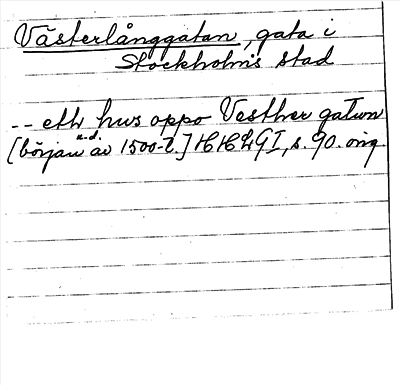 Västerlånggatan, gata i
Stockholms stad
-- eth hus oppo Vesther gatun
[början av 1500-t.] HHLGI, s. 90. orig.